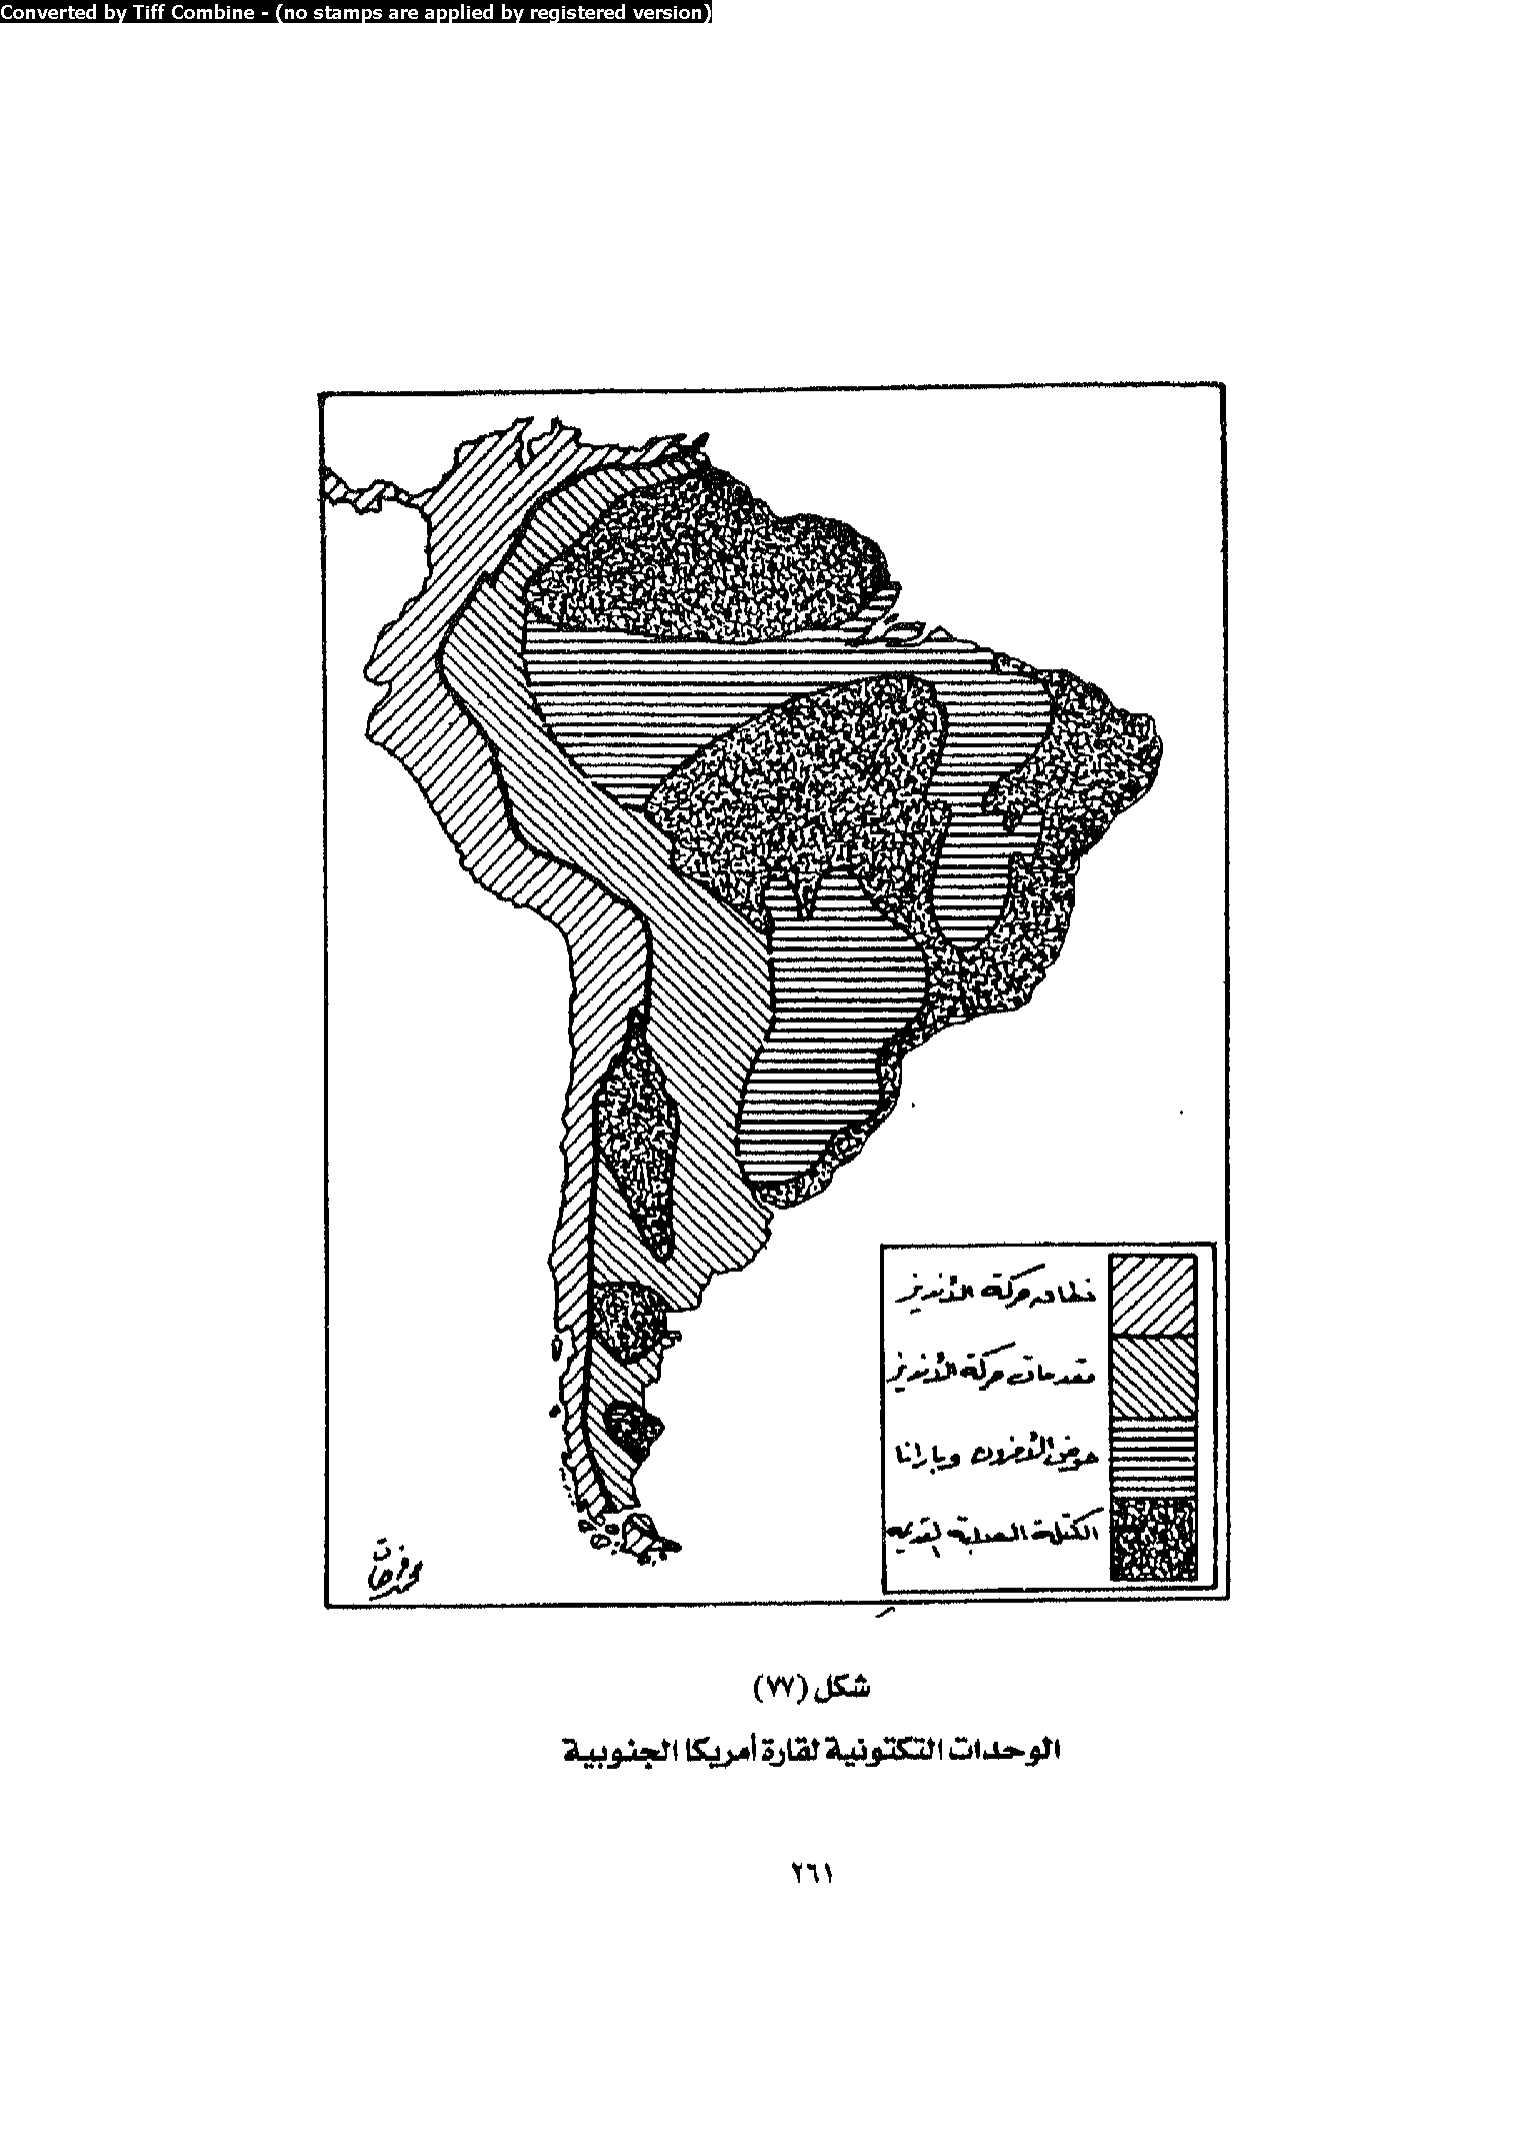 Converted by Tiff Combine - (no stamps are applied by registered version)
نطاق حركة الأنديز
مقدمات حركة الأنديز
حوض الأمزون وبارانا
الكتلة الصلبة القديمة
شكل (٧٧)
الوحدات التكتونية لقارة أمريكا الجنوبية
٢٦١